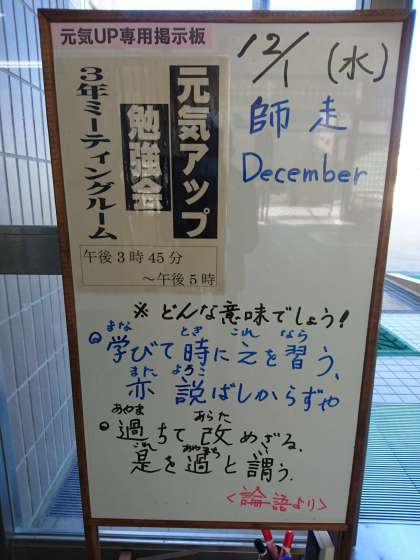 元気UP専用掲示板
12/1 (水)
師走
December
元気アップ
勉強会
3年ミーティングルーム
午後3時45分
～午後5時
※どんな意味でしょう!
まな とき これ なら
◎学びて時に之を習う、
また よろこ
亦 説ばしからずや
あやま あらた
◎過ちて改めざる、
これ あやまち い
是を過と謂う.
<論語より>